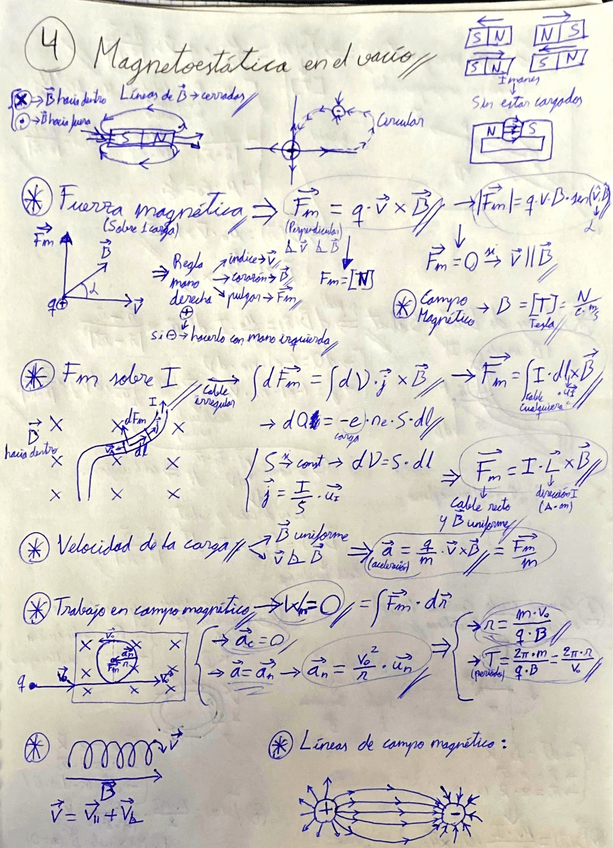 4 Magnetoestática en el vacío
S N   N S
S N   S N
Imanes
Sin estar cargados
N S
x → B⃗ hacia dentro   Líneas de B⃗ → cerradas
· → B⃗ hacia fuera
S N
Circular
* Fuerza magnética ⇒ F⃗m = q · v⃗ x B⃗ → |F⃗m| = q·v·B·sen(v⃗,B⃗)
(Sobre 1 carga)   (Perpendicular)
⊥ v⃗ ⊥ B⃗   α
Fm = [N]   F⃗m = 0 → v⃗ || B⃗
F⃗m   B⃗   α   v⃗   q +
⇒ Regla mano derecha
índice → v⃗
corazón → B⃗
pulgar → F⃗m
+
si ⊖ → hacerlo con mano izquierda
* Campo Magnético → B = [T] = N / C·m/s
Tesla
* Fm sobre I ⟷ ∫dF⃗m = ∫dV·j⃗ x B⃗ → F⃗m = ∫I·dl⃗ x B⃗
Cable irregular   cable cualquiera
B⃗ hacia dentro
I   dFm   I   dl
→ dQ = -e·ne·S·dl
carga
S → const → dV = S·dl
j⃗ = I/S · u⃗I
⇒ F⃗m = I·L⃗ x B⃗
Cable recto y B⃗ uniforme   dirección I (A·m)
* Velocidad de la carga
B⃗ uniforme
v⃗ ⊥ B⃗
⇒ a⃗ = q/m · v⃗ x B⃗ = F⃗m/m
(aceleración)
* Trabajo en campo magnético → Wm = 0 = ∫F⃗m · dr⃗
q   v⃗₀
→ a⃗c = 0
→ a⃗ = a⃗n → a⃗n = v₀²/r · u⃗n
⇒ → r = m·v₀ / q·B
→ T = 2π·m / q·B = 2π·r / v₀
(periodo)
*   v⃗
B⃗
v⃗ = v⃗|| + v⃗⊥
* Líneas de campo magnético:
+   -